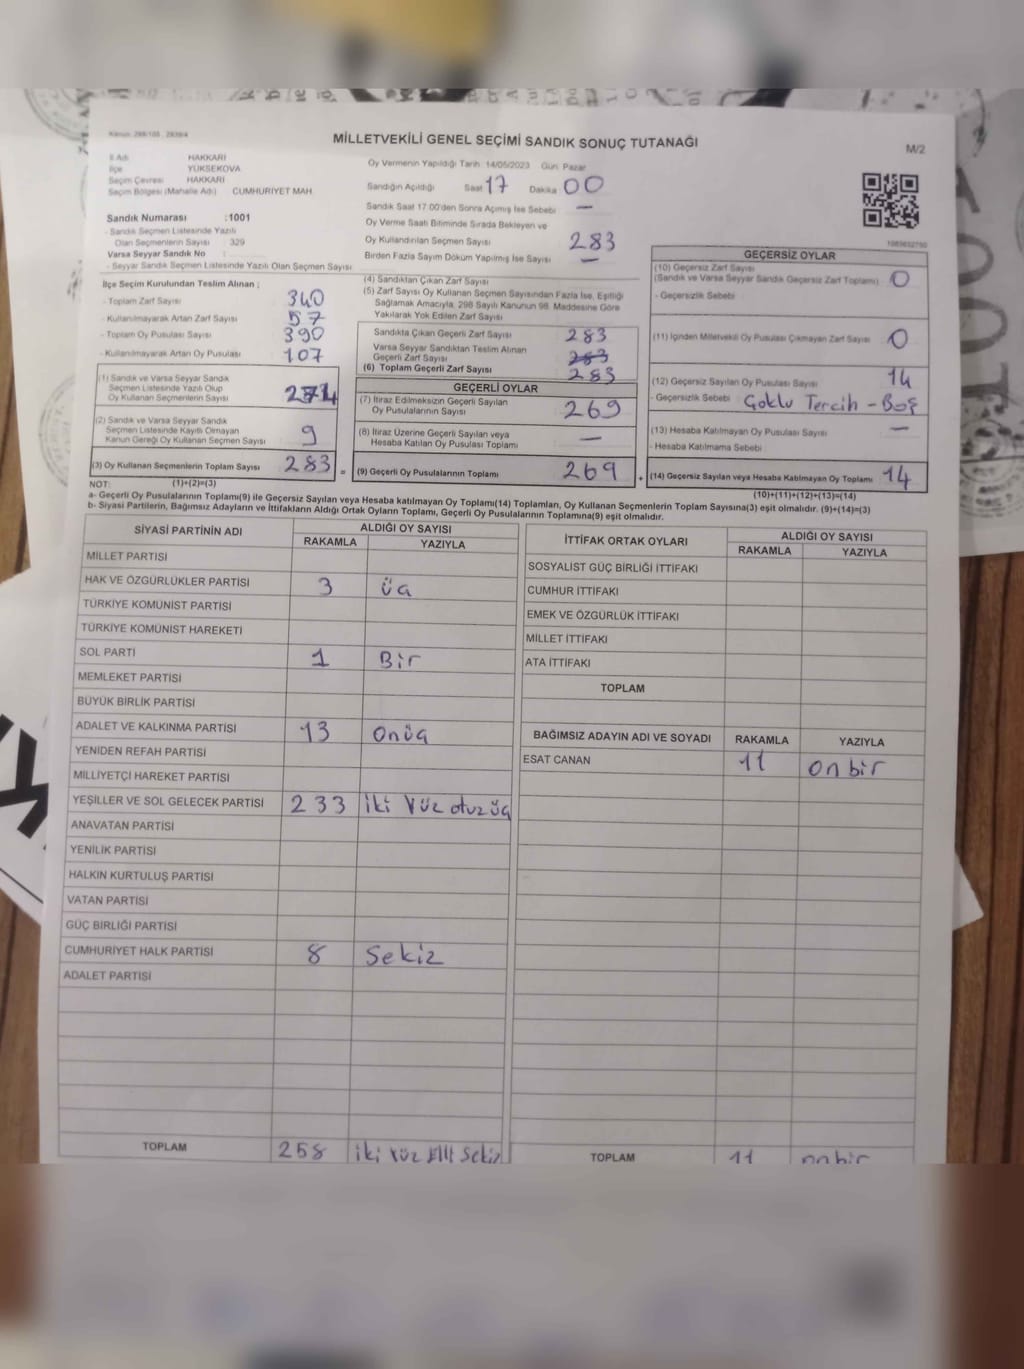 MİLLETVEKİLİ GENEL SEÇİMİ SANDIK SONUÇ TUTANAĞI
M/2
İl Adı HAKKARİ
İlçe YÜKSEKOVA
Seçim Çevresi HAKKARİ
Seçim Bölgesi (Mahalle Adı) CUMHURİYET MAH.
Sandık Numarası :1001
- Sandık Seçmen Listesinde Yazılı
Olan Seçmenlerin Sayısı : 329
Varsa Seyyar Sandık No :
- Seyyar Sandık Seçmen Listesinde Yazılı Olan Seçmen Sayısı:
Oy Vermenin Yapıldığı Tarih 14/05/2023 Gün: Pazar
Sandığın Açıldığı Saat 17 Dakika 00
Sandık Saat 17.00'den Sonra Açımış İse Sebebi —
Oy Verme Saati Bitiminde Sırada Bekleyen ve
Oy Kullandırılan Seçmen Sayısı 283
Birden Fazla Sayım Döküm Yapılmış İse Sayısı —
İlçe Seçim Kurulundan Teslim Alınan ;
- Toplam Zarf Sayısı 340
- Kullanılmayarak Artan Zarf Sayısı 57
- Toplam Oy Pusulası Sayısı 390
- Kullanılmayarak Artan Oy Pusulası 107
(1) Sandık ve Varsa Seyyar Sandık
Seçmen Listesinde Yazılı Olup
Oy Kullanan Seçmenlerin Sayısı 274
(2) Sandık ve Varsa Seyyar Sandık
Seçmen Listesinde Kayıtlı Olmayan
Kanun Gereği Oy Kullanan Seçmen Sayısı 9
(3) Oy Kullanan Seçmenlerin Toplam Sayısı 283 =
(4) Sandıktan Çıkan Zarf Sayısı
(5) Zarf Sayısı Oy Kullanan Seçmen Sayısından Fazla İse, Eşitliği
Sağlamak Amacıyla, 298 Sayılı Kanunun 98. Maddesine Göre
Yakılarak Yok Edilen Zarf Sayısı
Sandıkta Çıkan Geçerli Zarf Sayısı 283
Varsa Seyyar Sandıktan Teslim Alınan
Geçerli Zarf Sayısı 283
(6) Toplam Geçerli Zarf Sayısı 283
GEÇERLİ OYLAR
(7) İtiraz Edilmeksizin Geçerli Sayılan
Oy Pusulalarının Sayısı 269
(8) İtiraz Üzerine Geçerli Sayılan veya
Hesaba Katılan Oy Pusulası Toplamı —
(9) Geçerli Oy Pusulalarının Toplamı 269 +
GEÇERSİZ OYLAR
(10) Geçersiz Zarf Sayısı
(Sandık ve Varsa Seyyar Sandık Geçersiz Zarf Toplamı) 0
- Geçersizlik Sebebi
(11) İçinden Milletvekili Oy Pusulası Çıkmayan Zarf Sayısı 0
(12) Geçersiz Sayılan Oy Pusulası Sayısı 14
- Geçersizlik Sebebi Goklu Tercih - Boş
(13) Hesaba Katılmayan Oy Pusulası Sayısı —
- Hesaba Katılmama Sebebi
(14) Geçersiz Sayılan veya Hesaba Katılmayan Oy Toplamı 14
NOT: (1)+(2)=(3)
(10)+(11)+(12)+(13)=(14)
a- Geçerli Oy Pusulalarının Toplamı(9) ile Geçersiz Sayılan veya Hesaba katılmayan Oy Toplamı(14) Toplamları, Oy Kullanan Seçmenlerin Toplam Sayısına(3) eşit olmalıdır. (9)+(14)=(3)
b- Siyasi Partilerin, Bağımsız Adayların ve İttifakların Aldığı Oyların Toplamı, Geçerli Oy Pusulalarının Toplamına(9) eşit olmalıdır.
SİYASİ PARTİNİN ADI ALDIĞI OY SAYISI
RAKAMLA YAZIYLA
MİLLET PARTİSİ
HAK VE ÖZGÜRLÜKLER PARTİSİ 3 üç
TÜRKİYE KOMÜNİST PARTİSİ
TÜRKİYE KOMÜNİST HAREKETİ
SOL PARTİ 1 Bir
MEMLEKET PARTİSİ
BÜYÜK BİRLİK PARTİSİ
ADALET VE KALKINMA PARTİSİ 13 Onüç
YENİDEN REFAH PARTİSİ
MİLLİYETÇİ HAREKET PARTİSİ
YEŞİLLER VE SOL GELECEK PARTİSİ 233 iki Yüz otuz üç
ANAVATAN PARTİSİ
YENİLİK PARTİSİ
HALKIN KURTULUŞ PARTİSİ
VATAN PARTİSİ
GÜÇ BİRLİĞİ PARTİSİ
CUMHURİYET HALK PARTİSİ 8 Sekiz
ADALET PARTİSİ
TOPLAM 258 iki Yüz Elli Sekiz
İTTİFAK ORTAK OYLARI ALDIĞI OY SAYISI
RAKAMLA YAZIYLA
SOSYALİST GÜÇ BİRLİĞİ İTTİFAKI
CUMHUR İTTİFAKI
EMEK VE ÖZGÜRLÜK İTTİFAKI
MİLLET İTTİFAKI
ATA İTTİFAKI
TOPLAM
BAĞIMSIZ ADAYIN ADI VE SOYADI RAKAMLA YAZIYLA
ESAT CANAN 11 on bir
TOPLAM 11 on bir
1001